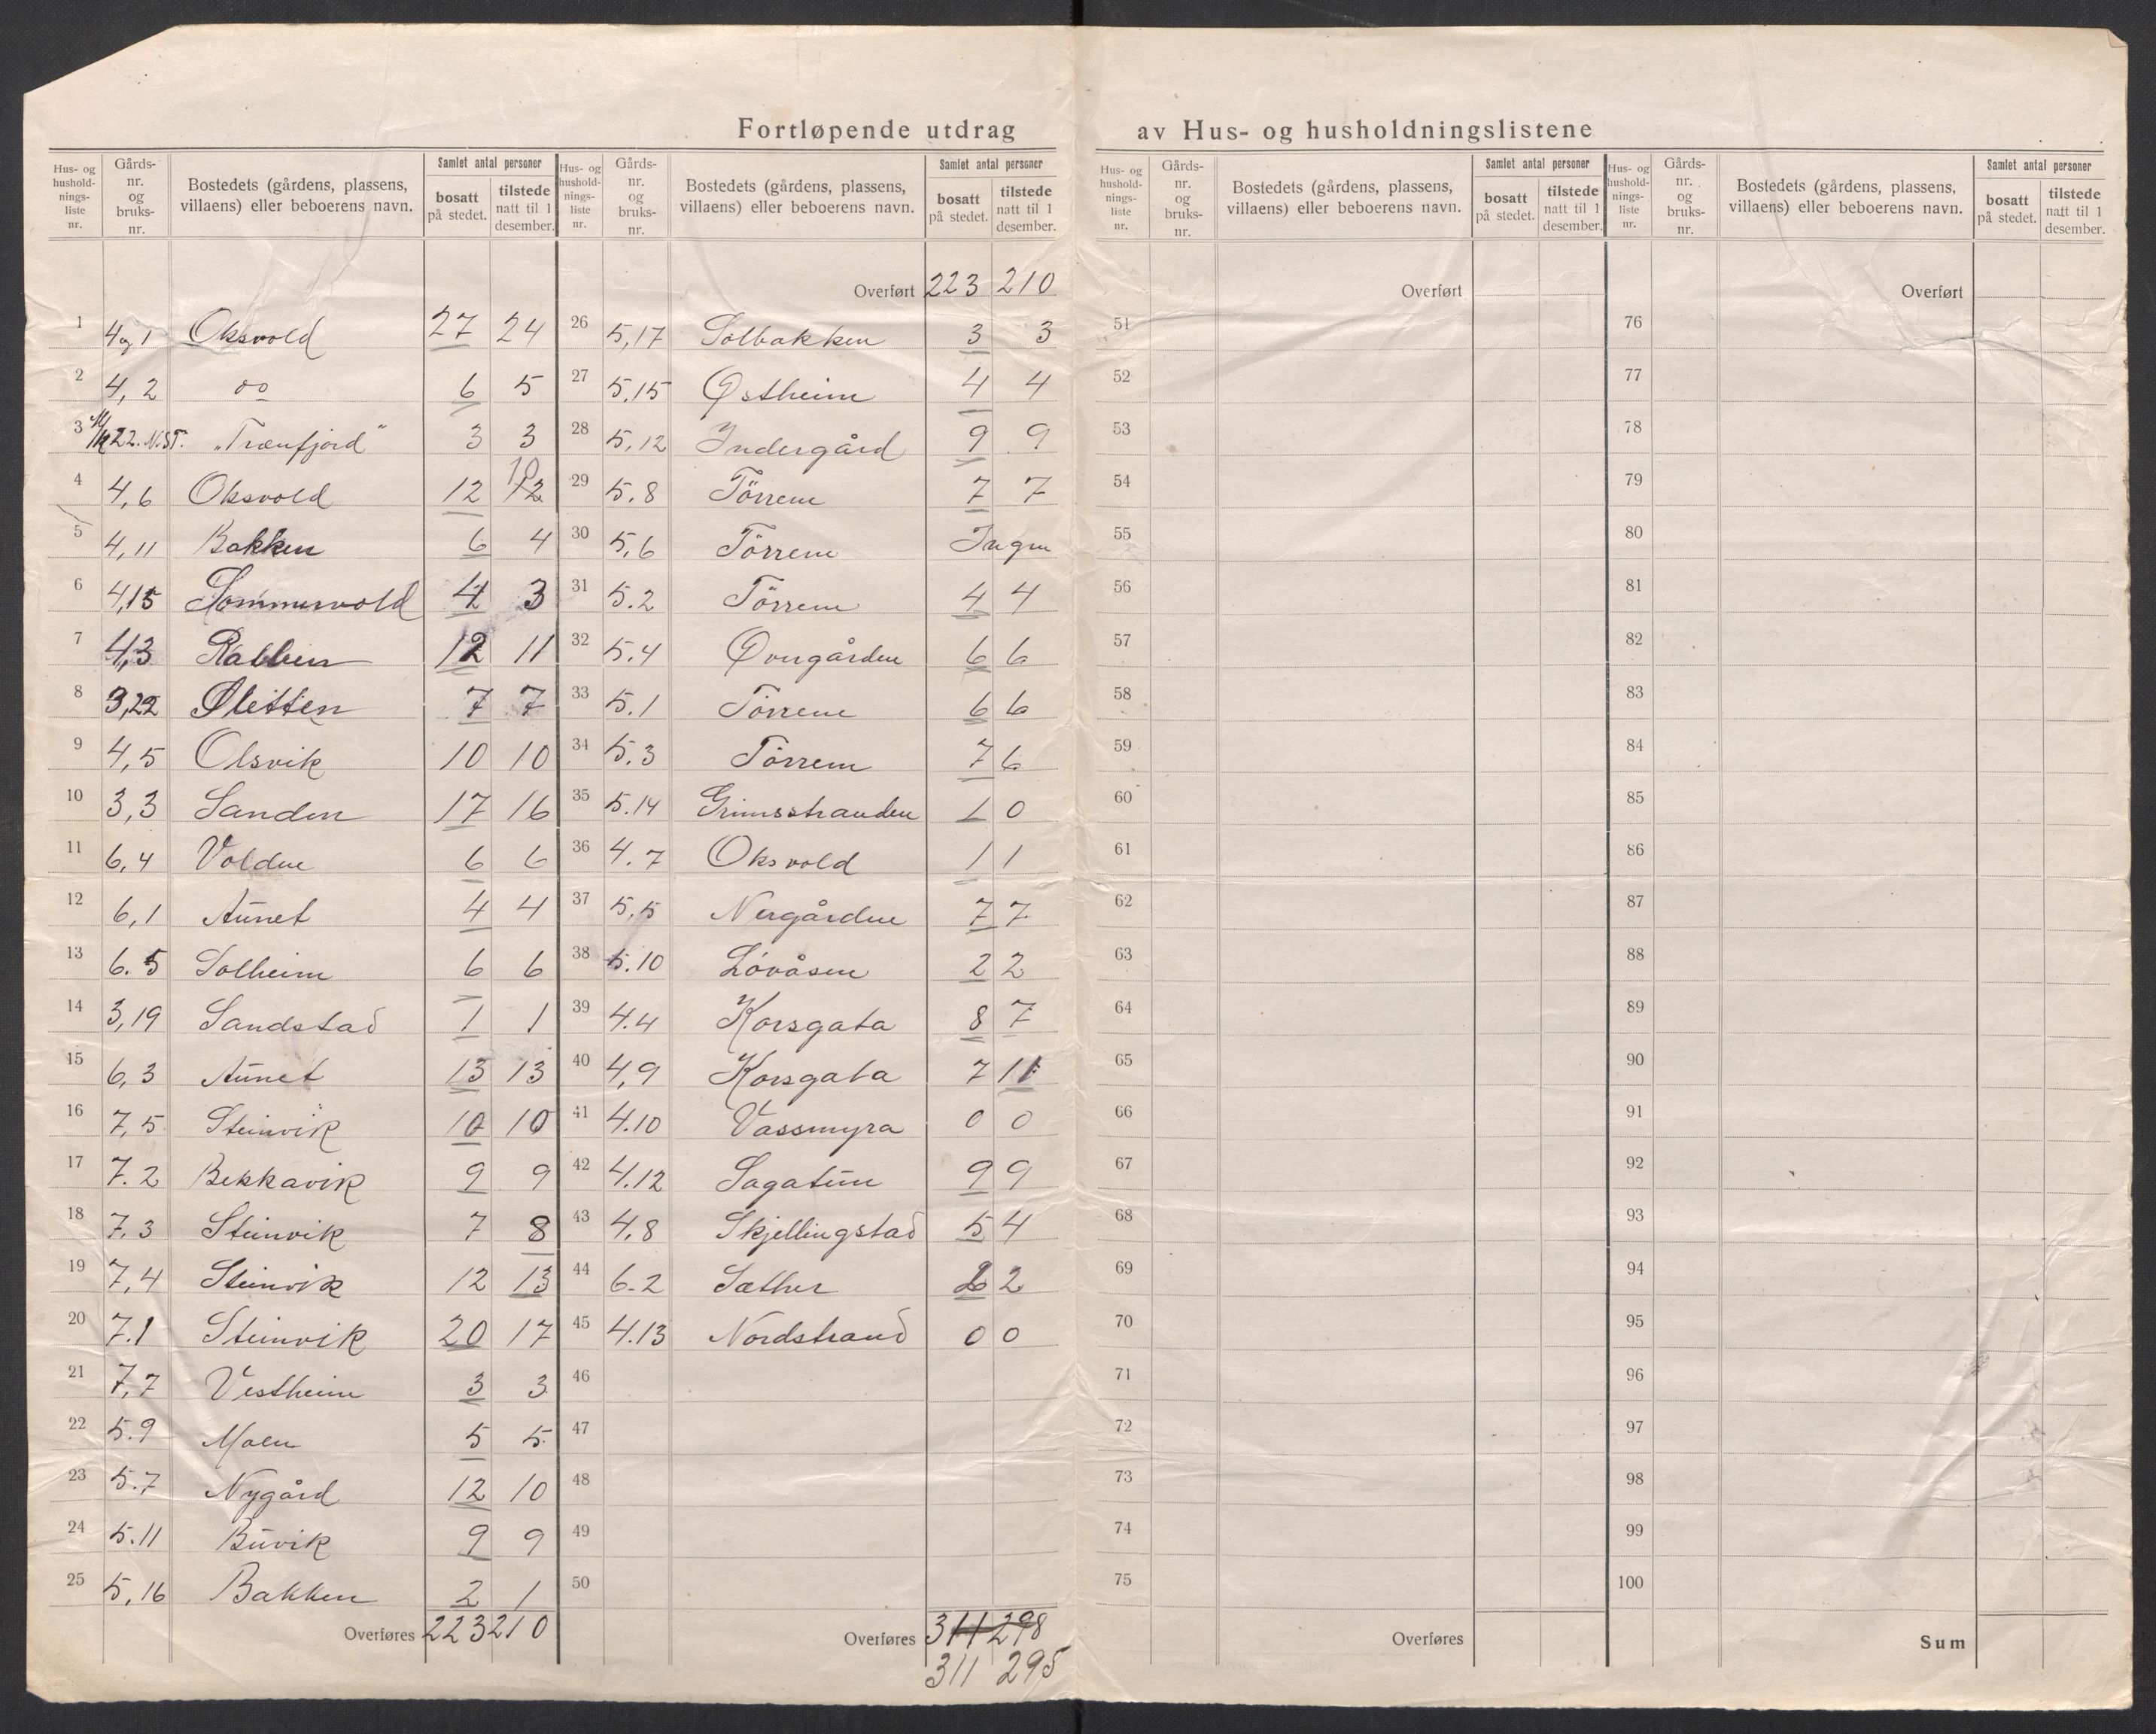 Fortløpende utdrag av Hus- og husholdningslistene
Hus- og hushold-nings-liste nr. | Gårds-nr. og bruks-nr. | Bostedets (gårdens, plassens, villaens) eller beboerens navn. | Samlet antal personer | bosatt på stedet. | tilstede natt til 1 desember.
1 4, 1 Oksvold 27 24
2 4, 2 do 6 5
3 N.ST. "Trænfjord" 3 3
4 4, 6 Oksvold 12 12 10
5 4, 11 Bakken 6 4
6 4,15 Sommervold 4 3
7 4,3 Rabben 12 11
8 3,22 Sletten 7 7
9 4, 5 Olsvik 10 10
10 3, 3 Sanden 17 16
11 6, 4 Volden 6 6
12 6, 1 Aunet 4 4
13 6. 5 Solheim 6 6
14 3, 19 Sandstad 1 1
15 6, 3 Aunet 13 13
16 7, 5 Steinvik 10 10
17 7. 2 Bekkavik 9 9
18 7. 3 Steinvik 7 8
19 7, 4 Steinvik 12 13
20 7.1 Steinvik 20 17
21 7, 7 Vestheim 3 3
22 5. 9 Moen 5 5
23 5. 7 Nygård 12 10
24 5. 11 Buvik 9 9
25 5, 16 Bakken 2 1
Overføres 223 210
Hus- og hushold-nings-liste nr. | Gårds-nr. og bruks-nr. | Bostedets (gårdens, plassens, villaens) eller beboerens navn. | Samlet antal personer | bosatt på stedet. | tilstede natt til 1 desember.
Overført 223 210
26 5,17 Solbakken 3 3
27 5,15 Østheim 4 4
28 5, 12 Indergård 9 9
29 5. 8 Törrem 7 7
30 5, 6 Törrem Ingen
31 5. 2 Törrem 4 4
32 5. 4 Övergården 6 6
33 5. 1 Törrem 6 6
34 5. 3 Törrem 7 6
35 5. 14 Grimsstranden 1 0
36 4. 7 Oksvold 1 1
37 5, 5 Nergården 7 7
38 5. 10 Lövåsen 2 2
39 4. 4 Korsgata 8 7
40 4, 9 Korsgata 7 11
41 4.10 Vassmyra 0 0
42 4.12 Sagatun 9 9
43 4, 8 Skjellingstad 5 4
44 6. 2 Sæther 2
45 4.13 Nordstrand 0 0
46
47
48
49
50
Overføres 311 298
311 295
Hus- og hushold-nings-liste nr. | Gårds-nr. og bruks-nr. | Bostedets (gårdens, plassens, villaens) eller beboerens navn. | Samlet antal personer | bosatt på stedet. | tilstede natt til 1 desember.
Overført
51
52
53
54
55
56
57
58
59
60
61
62
63
64
65
66
67
68
69
70
71
72
73
74
75
Overføres
Hus- og hushold-nings-liste nr. | Gårds-nr. og bruks-nr. | Bostedets (gårdens, plassens, villaens) eller beboerens navn. | Samlet antal personer | bosatt på stedet. | tilstede natt til 1 desember.
Overført
76
77
78
79
80
81
82
83
84
85
86
87
88
89
90
91
92
93
94
95
96
97
98
99
100
Sum